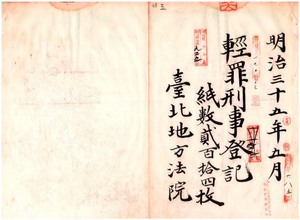 明治三十五年五月
輕罪刑事登記
紙數貳百拾四枚
臺北地方法院